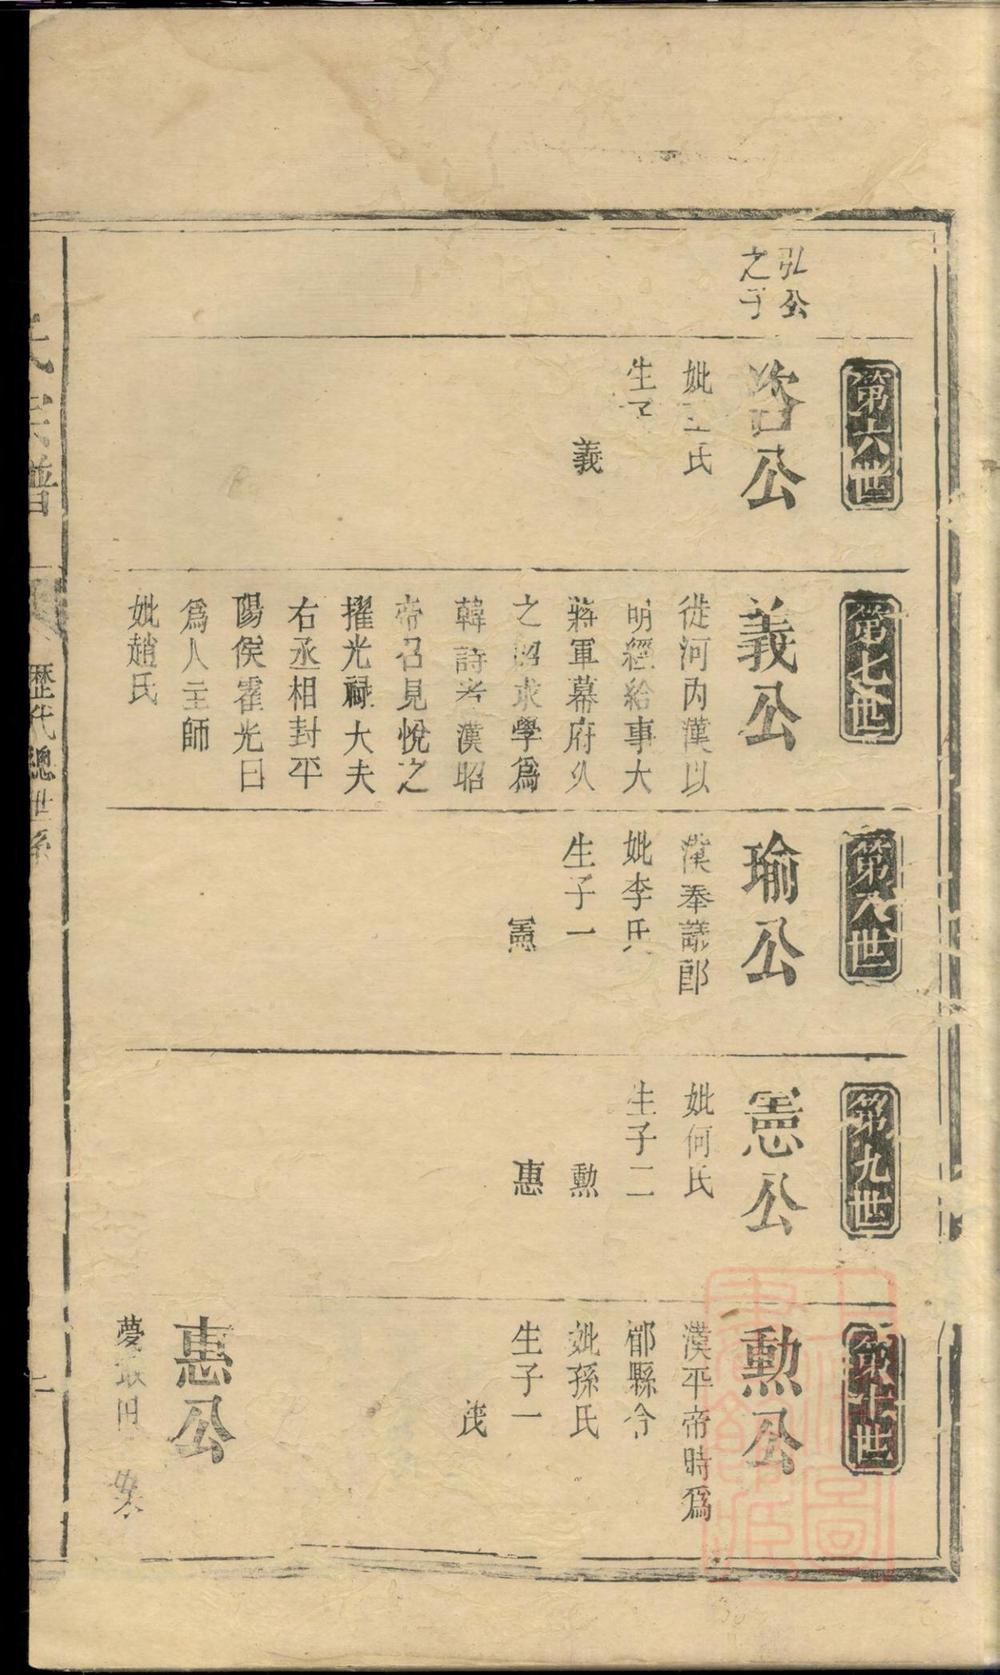 弘公
之子
第六世
咨公
妣王氏
生子
義
第七世
義公
從河內漢以
明經給事大
蔣軍幕府久
之詔求學爲
韓詩者漢昭
帝召見悅之
擢光祿大夫
右丞相封平
陽侯霍光曰
爲人主師
妣趙氏
第八世
瑜公
漢奉議郎
妣李氏
生子一
憲
第九世
憲公
妣何氏
生子二
勲
惠
第十世
勲公
漢平帝時爲
縣令
妣孫氏
生子一
茂
惠公
氏宗譜
歷代總世系